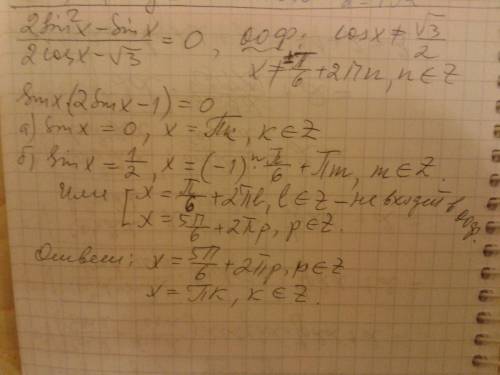 (2sin²x − sinx)/(2cosx − √3) = 0, ООФ: cosx ≠ √3/2
x ≠ ±π/6 + 2πn, n ∈ Z
sinx·(2sinx − 1) = 0
а) sinx = 0, x = πk, k ∈ Z
б) sinx = 1/2, x = (−1)ⁿ·π/6 + πm, m ∈ Z.
или [ x = π/6 + 2πl, l ∈ Z – не входит в ООФ.
x = 5π/6 + 2πp, p ∈ Z.
Ответ: x = 5π/6 + 2πp, p ∈ Z
x = πk, k ∈ Z.